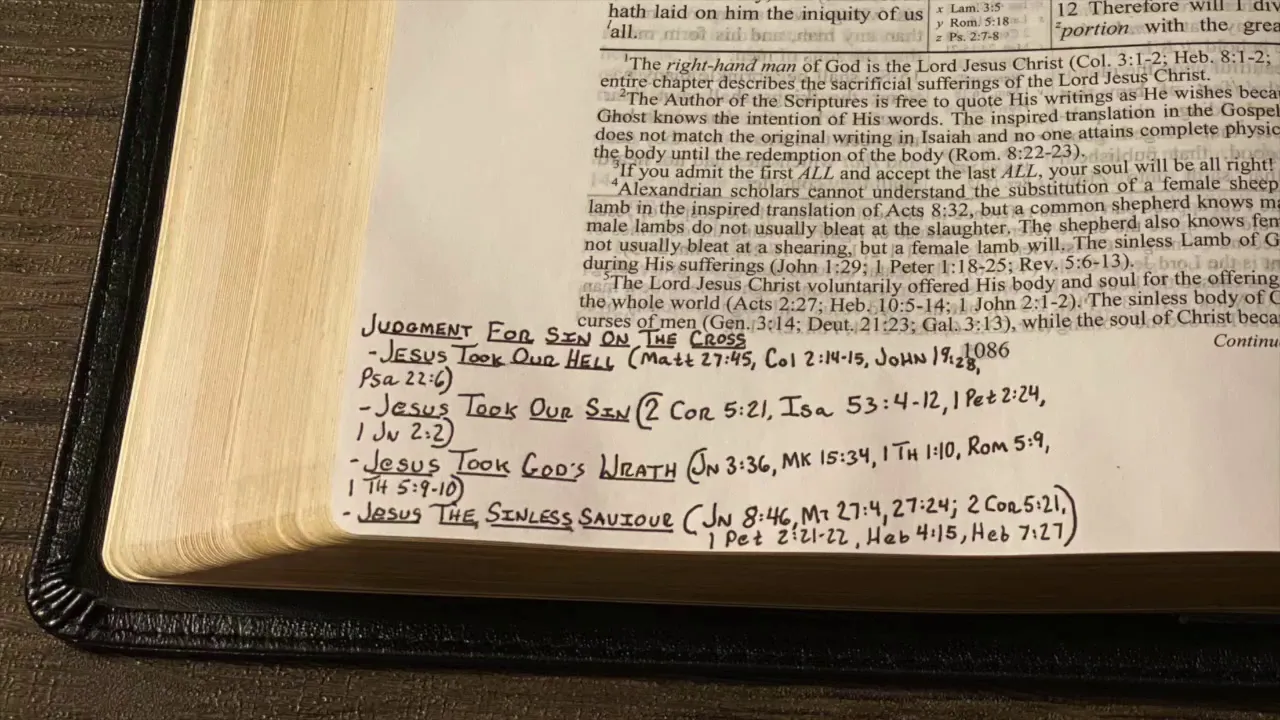 hath laid on him the iniquity of us
all.
x Lam. 3:5
y Rom. 5:18
z Ps. 2:7-8
12 Therefore will I div
z portion with the grea
1The right-hand man of God is the Lord Jesus Christ (Col. 3:1-2; Heb. 8:1-2;
entire chapter describes the sacrificial sufferings of the Lord Jesus Christ.
2The Author of the Scriptures is free to quote His writings as He wishes beca
Ghost knows the intention of His words. The inspired translation in the Gospel
does not match the original writing in Isaiah and no one attains complete physic
the body until the redemption of the body (Rom. 8:22-23).
3If you admit the first ALL and accept the last ALL, your soul will be all right!
4Alexandrian scholars cannot understand the substitution of a female sheep
lamb in the inspired translation of Acts 8:32, but a common shepherd knows ma
male lambs do not usually bleat at the slaughter. The shepherd also knows fem
not usually bleat at a shearing, but a female lamb will. The sinless Lamb of G
during His sufferings (John 1:29; 1 Peter 1:18-25; Rev. 5:6-13).
5The Lord Jesus Christ voluntarily offered His body and soul for the offering
the whole world (Acts 2:27; Heb. 10:5-14; 1 John 2:1-2). The sinless body of C
curses of men (Gen. 3:14; Deut. 21:23; Gal. 3:13), while the soul of Christ beca
Continu
1086
JUDGMENT FOR SIN ON THE CROSS
- JESUS TOOK OUR HELL (Matt 27:45, Col 2:14-15, JOHN 19:28,
Psa 22:6)
- JESUS TOOK OUR SIN (2 Cor 5:21, Isa 53:4-12, 1 Pet 2:24,
1 JN 2:2)
- JESUS TOOK GOD'S WRATH (JN 3:36, MK 15:34, 1 TH 1:10, Rom 5:9,
1 TH 5:9-10)
- JESUS THE SINLESS SAVIOUR (JN 8:46, MT 27:4, 27:24; 2 Cor 5:21,
1 Pet 2:21-22, Heb 4:15, Heb 7:27)